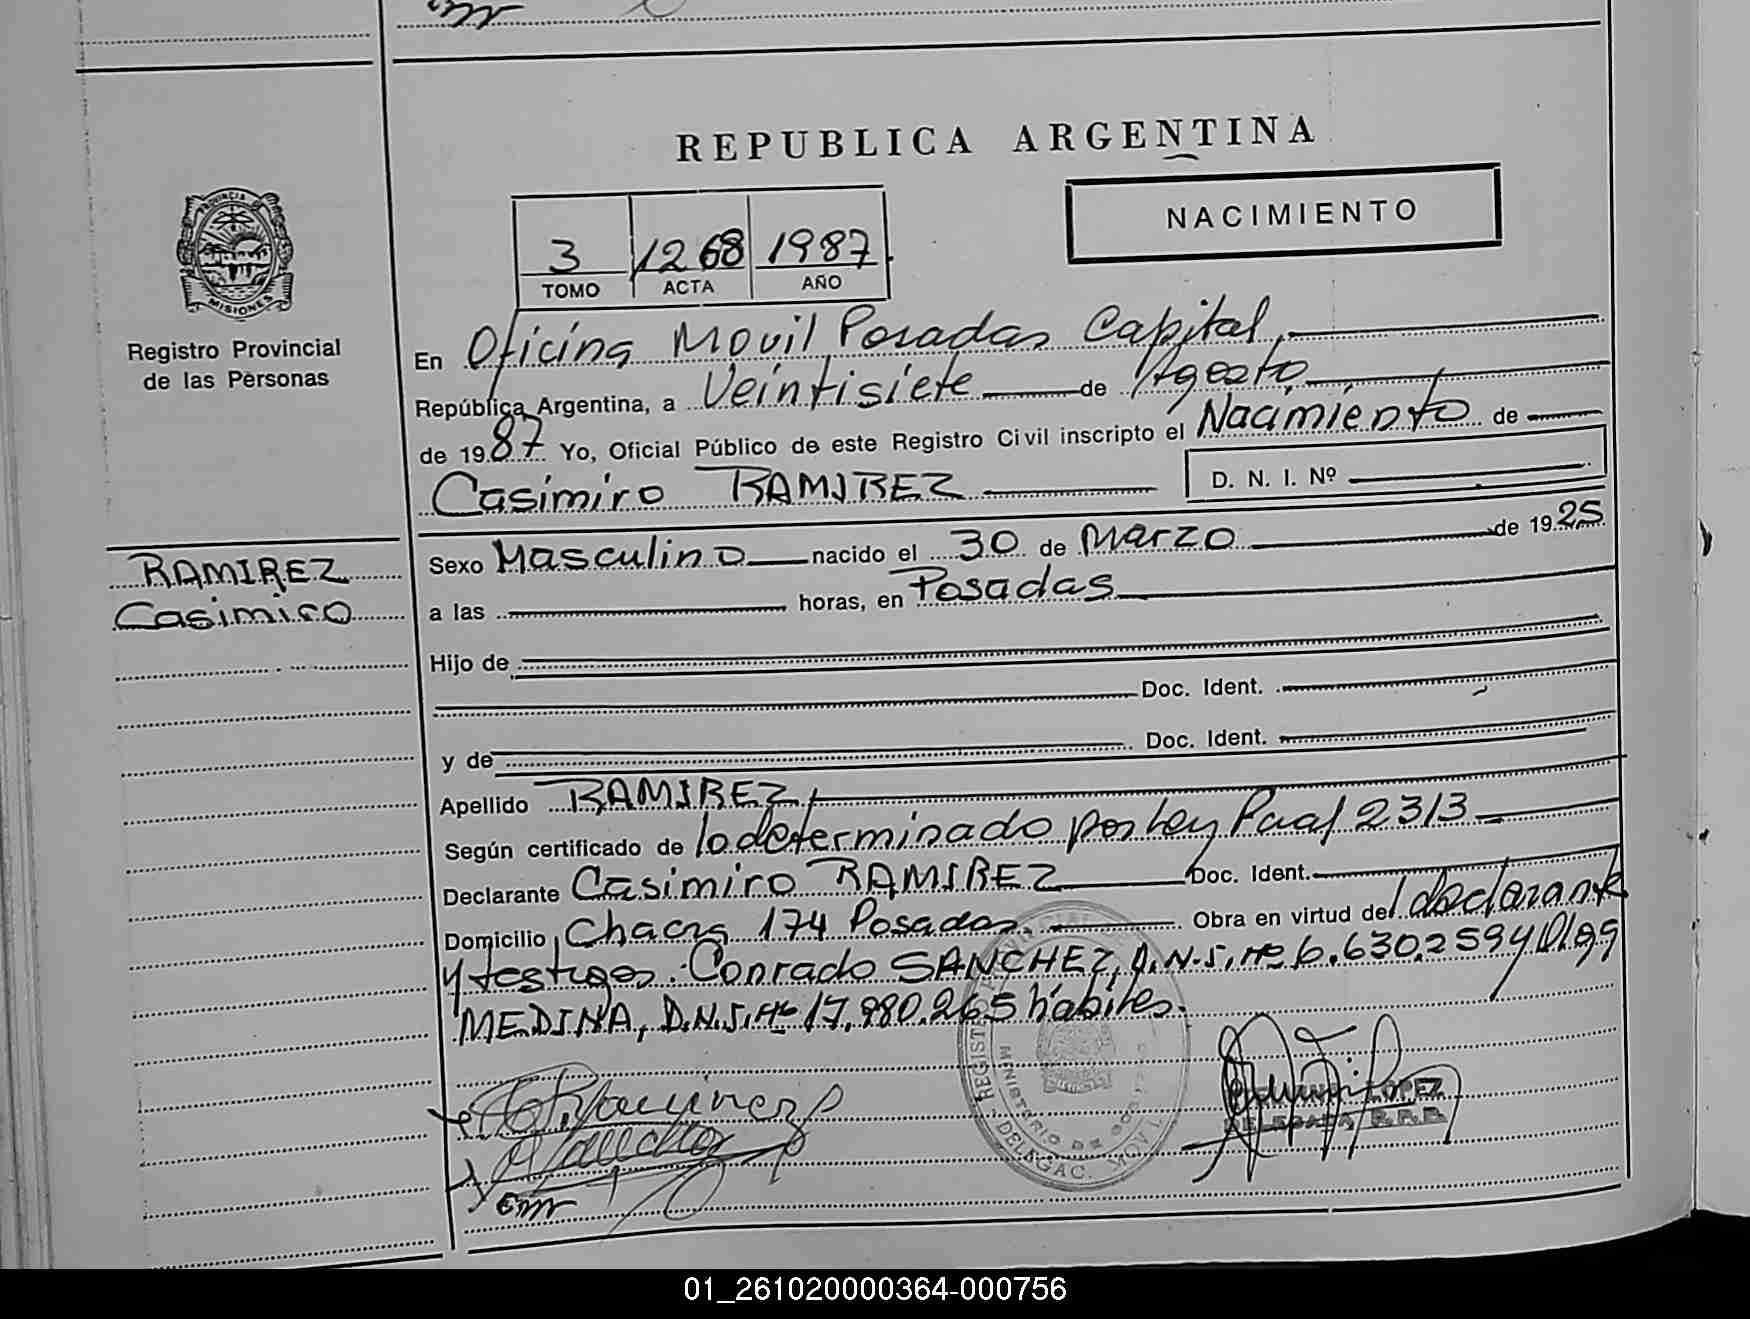 REPUBLICA ARGENTINA
NACIMIENTO
3 1268 1987
TOMO ACTA AÑO
PROVINCIA DE
MISIONES
Registro Provincial
de las Personas
En Oficina Movil Posadas Capital,
República Argentina, a Veintisiete de Agosto
de 1987 Yo, Oficial Público de este Registro Civil inscripto el Nacimiento de
Casimiro RAMIREZ D. N. I. Nº
RAMIREZ
Casimiro
Sexo Masculino nacido el 30 de Marzo de 1925
a las horas, en Posadas
Hijo de
Doc. Ident.
y de Doc. Ident.
Apellido RAMIREZ
Según certificado de lo determinado por Ley Pcial 2313
Declarante Casimiro RAMIREZ Doc. Ident.
Domicilio Chacra 174 Posadas. Obra en virtud del declarante
y testigos: Conrado SANCHEZ, D.N.I. Nº 6.630.259 y Olga
MEDINA, D.N.I. Nº 17.980.265 hábiles.
REGISTRO
MINISTERIO DE GO
DELEGAC. MOVIL
LOPEZ
DELEGADA
01_261020000364-000756